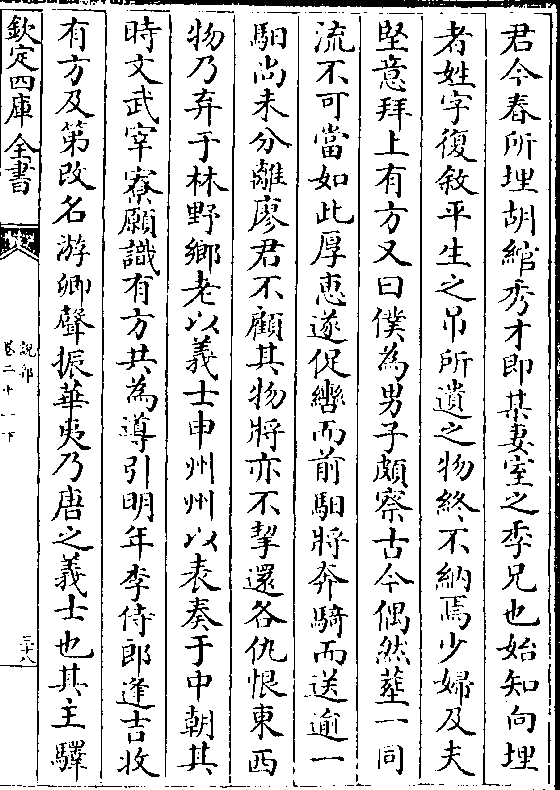 君今春所埋胡綰秀才即某妻室之季兄也始知向埋
者姓字復敘平生之吊所遺之物終不納焉少婦及夫
堅意拜上有方又曰僕為男子頗察古今偶然塟一同
流不可當如此厚恵遂促轡而前馹將奔騎而送逾一
馹尚未分離廖君不顧其物將亦不挈還各仇恨東西
物乃弃于林野鄉老以義士申州州以表奏于中朝其
時文武宰寮願識有方共為導引明年李侍郎逢吉收
有方及第改名游卿聲振華夷乃唐之義士也其主驛
欽定四庫全書
説郛
卷二十一下
三十八